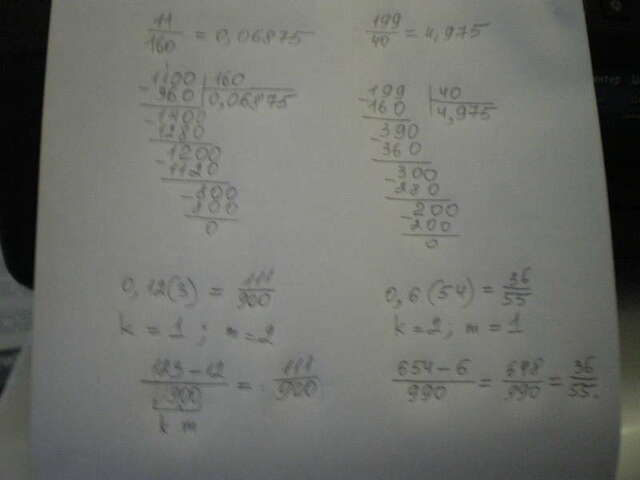 11/160 = 0,06875
1100 | 160
- 960 | 0,06875
- 1400
1280
- 1200
1120
- 800
800
0
199/40 = 4,975
- 199 | 40
160 | 4,975
- 390
360
- 300
280
- 200
200
0
0,12(3) = 111/900
k = 1; m = 2
123 - 12 / 900 = 111/900
k m
0,6(54) = 36/55
k = 2; m = 1
654 - 6 / 990 = 648/990 = 36/55